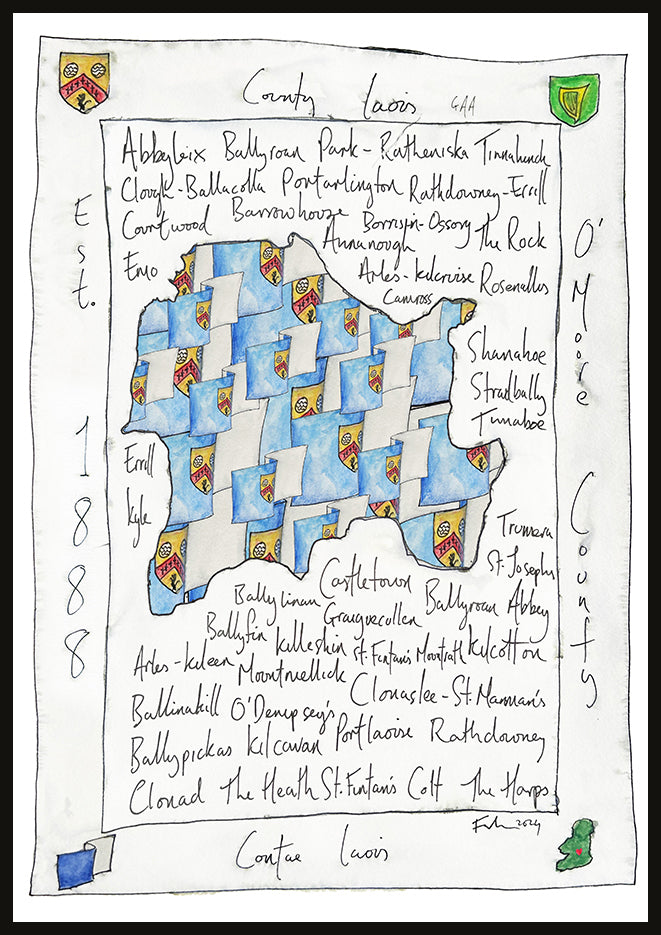 County Laois GAA
Est. 1888
O'Moore County
Abbyleix Ballyroan Park-Ratheniska Tinnahinch
Clough-Ballacolla Portarlington Rathdowney-Errill
Courtwood Barrowhouse Borris-in-Ossory The Rock
Annanough
Emo Arles-Kilcruise Rosenallis
Camross
Shanahoe
Stradbally
Timahoe
Errill
Kyle
Trumera
St. Josephs
Ballylinan Castletown Ballyroan Abbey
Graiguecullen
Ballyfin Killeshin St. Fintan's Mountrath Kilcotton
Arles-Killeen Mountmellick
Clonaslee-St. Manman's
Ballinakill O'Dempsey's
Ballypickas Kilcavan Portlaoise Rathdowney
Clonad The Heath St. Fintan's Colt The Harps
2024
Contae Laois